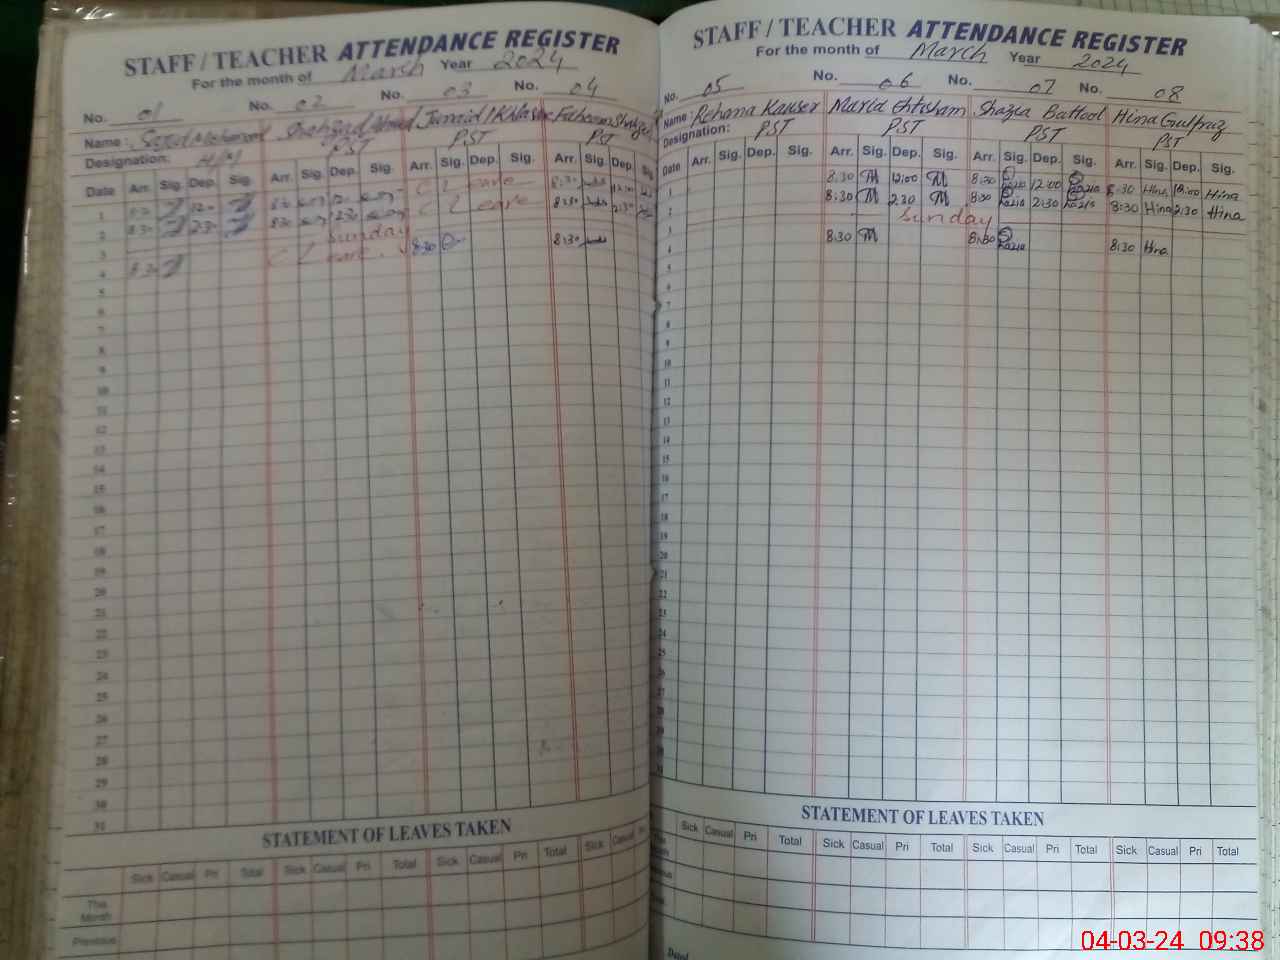 STAFF / TEACHER ATTENDANCE REGISTER
For the month of March Year 2024
No. 01 No. 02 No. 03 No. 04
Name: Shahzad Ahmad Junaid Ikhlas Faheem
Designation: PST PST PST
Date Arr. Sig. Dep. Sig. Arr. Sig. Dep. Sig. Arr. Sig. Dep. Sig. Arr. Sig. Dep. Sig.
1 8:30 12:00 8:30 C Leave 8:30 12:00
2 8:30 2:30 8:30 2:30 C Leave 8:30 2:30
3 Sunday
4 8:30 C Leave 8:30 8:30
5
6
7
8
9
10
11
12
13
14
15
16
17
18
19
20
21
22
23
24
25
26
27
28
29
30
31
STATEMENT OF LEAVES TAKEN
Sick Casual Pri Total Sick Casual Pri Total Sick Casual Pri Total Sick Casual
This Month
Previous
STAFF / TEACHER ATTENDANCE REGISTER
For the month of March Year 2024
No. 05 No. 06 No. 07 No. 08
Name: Rehana Kauser Maria Ehtisham Shazia Batool Hina Gulfraz
Designation: PST PST PST PST
Date Arr. Sig. Dep. Sig. Arr. Sig. Dep. Sig. Arr. Sig. Dep. Sig. Arr. Sig. Dep. Sig.
1 8:30 M 12:00 M 8:30 Shazia 12:00 Shazia 8:30 Hina 12:00 Hina
2 8:30 M 2:30 M 8:30 Shazia 2:30 Shazia 8:30 Hina 2:30 Hina
3 Sunday
4 8:30 M 8:30 Shazia 8:30 Hina
5
6
7
8
9
10
11
12
13
14
15
16
17
18
19
20
21
22
23
24
25
26
27
28
29
30
31
STATEMENT OF LEAVES TAKEN
Sick Casual Pri Total Sick Casual Pri Total Sick Casual Pri Total Sick Casual Pri Total
Dated
04-03-24 09:38